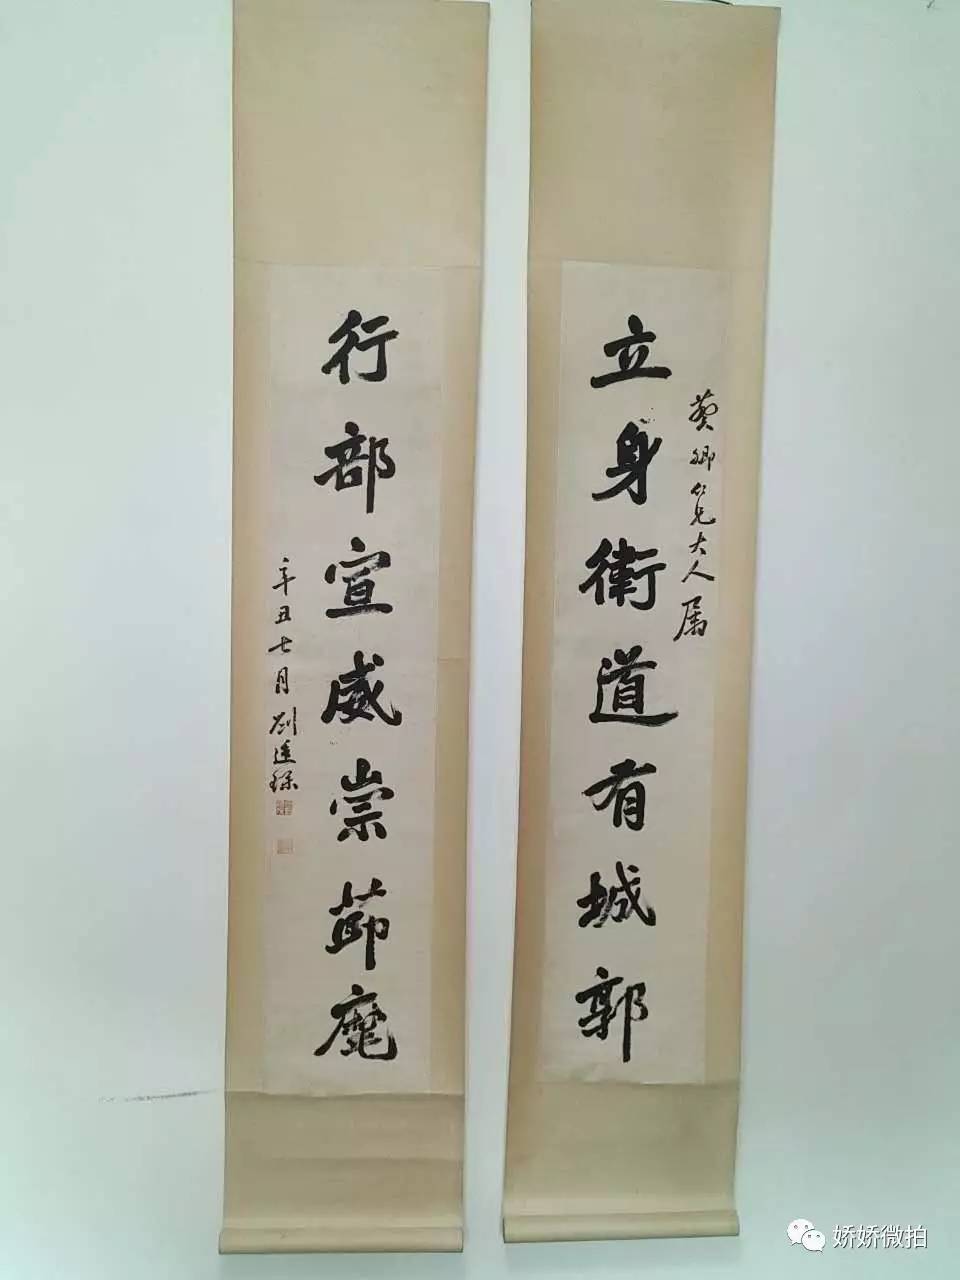 葵卿仁兄大人属
立身衛道有城郭
行部宣威崇節麾
辛丑七月刘廷琛
娇娇微拍